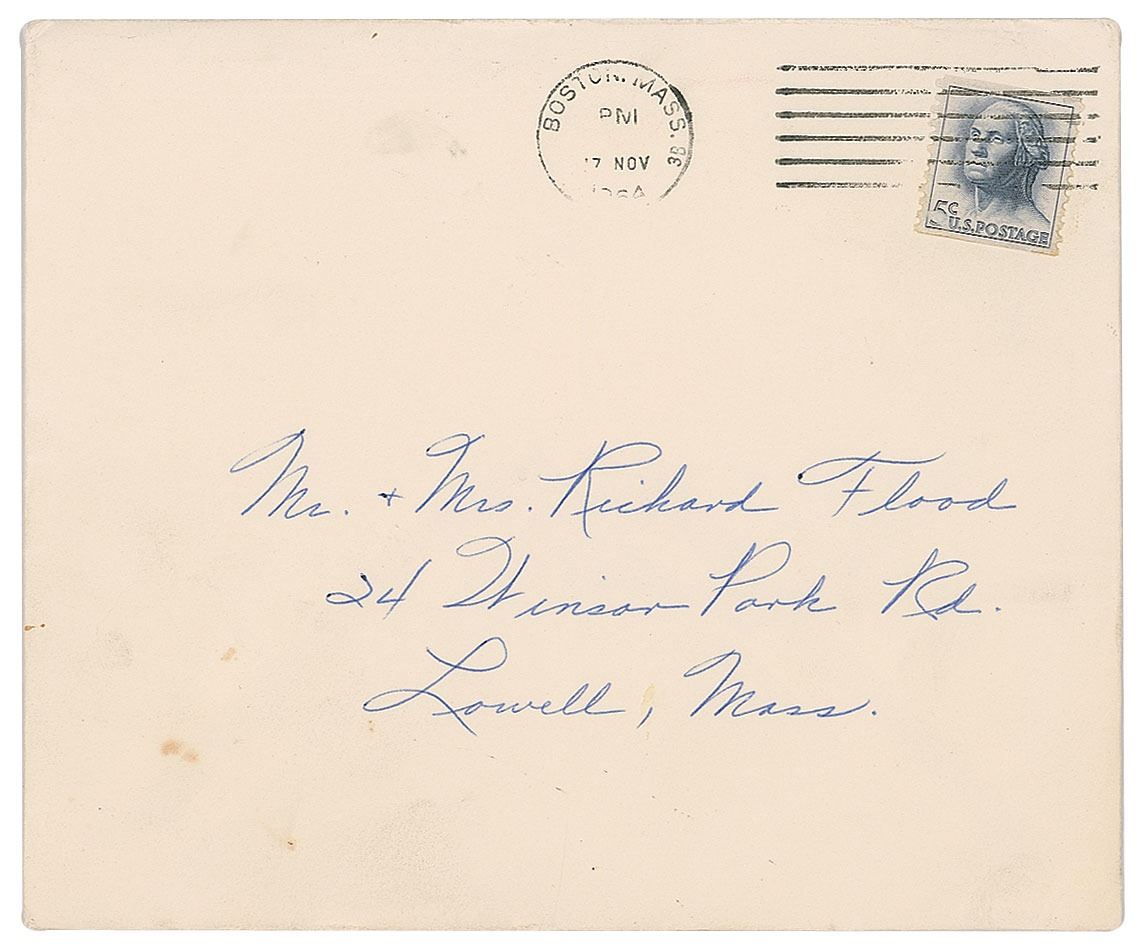 BOSTON, MASS.
PM
17 NOV
1964
3B
5¢
U.S. POSTAGE
Mr. + Mrs. Richard Flood
24 Winsor Park Rd.
Lowell, Mass.